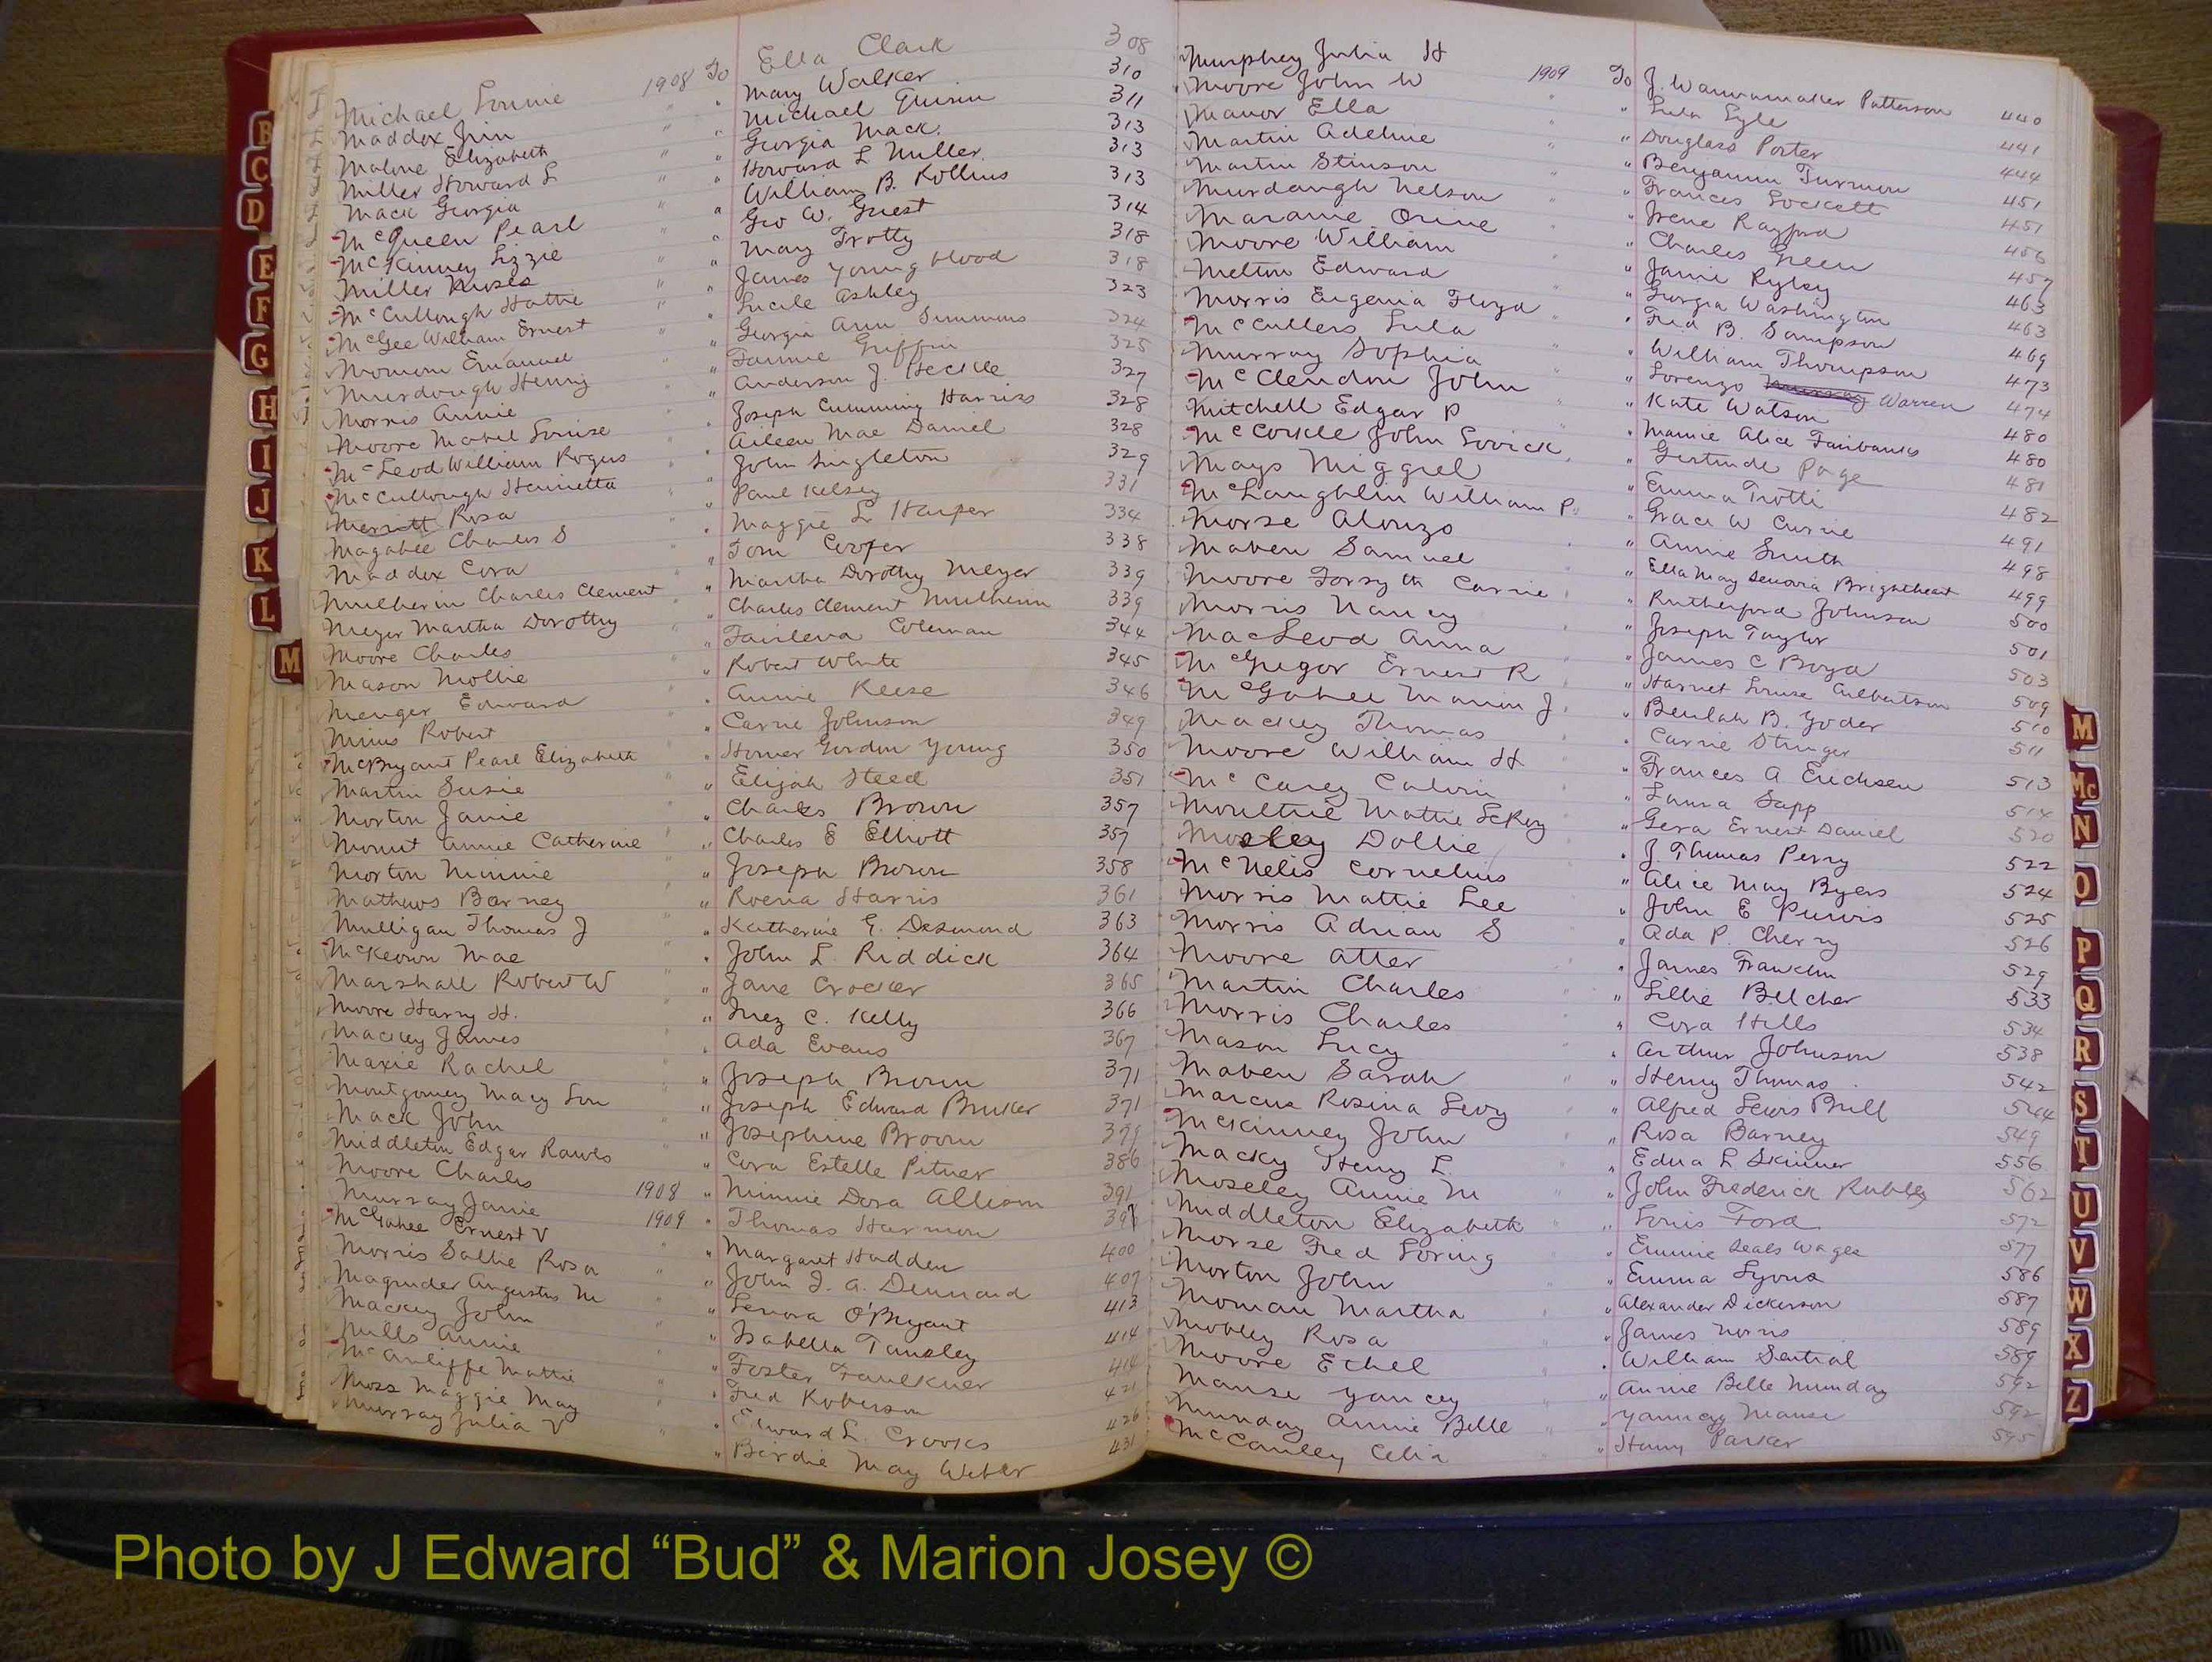 Michael Lonnie 1908 To Ella Clark 308
Maddox Jim " " Mary Walker 310
Malone Elizabeth " " Michael Quinn 311
Miller Howard L " " Georgia Mack 313
Mack Georgia " " Howard L Miller 313
McQueen Pearl " " William B. Rollins 313
McKinney Lizzie " " Geo W. Guest 314
Miller Moses " " Mary Trotty 318
McCullough Hattie " " James Youngblood 318
McGee William Ernest " " Lucile Ashley 323
Momom Emanuel " " Georgia Ann Simmons 324
Murdough Henry " " Fannie Griffin 325
Morris Annie " " Anderson J. Heckle 327
Moore Mabel Louise " " Joseph Cumming Harriss 328
McLeod William Rogers " " Aileen Mae Daniel 328
McCullough Henrietta " " John Singleton 329
Merritt Rosa " " Paul Kelsey 331
Magahee Charles S " " Maggie L Harper 334
Maddox Cora " " Tom Cooper 338
Mulherin Charles Clement " " Martha Dorothy Meyer 339
Meyer Martha Dorothy " " Charles Clement Mulherin 339
Moore Charles " " Coleman 344
Mason Mollie " " Robert White 345
Menger Edward " " Annie Reese 346
Mims Robert " " Carrie Johnson 349
McBryant Pearl Elizabeth " " Homer Gordon Young 350
Martin Susie " " Elijah Steed 351
Morton Janie " " Charles Brown 357
Mount Annie Catherine " " Charles E Elliott 357
Morton Minnie " " Joseph Brown 358
Mathews Barney " " Roena Harris 361
Mulligan Thomas J " " Katherine E. Desmond 363
McKeown Mae " " John L. Riddick 364
Marshall Robert W " " Jane Crocker 365
Moore Harry H. " " Inez C. Kelly 366
Mackey James " " Ada Evans 367
Maxie Rachel " " Joseph Brown 371
Montgomery Mary Lou " " Joseph Edward Bruker 371
Mack John " " Josephine Broom 379
Middleton Edgar Rawls " " Cora Estelle Pitner 386
Moore Charles 1908 " Minnie Dora Allison 391
Murray Janie 1909 " Thomas Harmon 398
McGahee Ernest V " " Margaret Hadden 400
Morris Sallie Rosa " " John J. A. Dennard 407
Magruder Augustus M " " Lenora O'Bryant 413
Mackey John " " Isabella Tansley 414
Mills Annie " " Foster Faulkner 414
McAuliffe Mattie " " Fred Roberson 421
Moss Maggie May " " Edward L. Crooks 426
Murray Julia V " " Birdie May Weber 431
Murphey Julia H 1909 To J. Wannamaker Patterson 440
Moore John W " " Lula Lyle 441
Meanor Ella " " Douglass Porter 444
Martin Adeline " " Benjamin Turman 451
Martin Stinson " " Frances Lockett 451
Murdaugh Nelson " " Irene Rayford 456
Marame Orine " " Charles Green 457
Moore William " " Janie Ryley 463
Melton Edward " " Georgia Washington 463
Morris Eugenia Floyd " " Fred B. Sampson 469
McCullers Lula " " William Thompson 473
Murray Sophia " " Lorenzo Murray Warren 474
McClendon John " " Kate Watson 480
Mitchell Edgar P " " Mamie Alice Fairbanks 480
McCorkle John Lovick " " Gertrude Page 481
Mays Miggiel " " Emma Trotti 482
McLaughlin William P. " " Grace W Currie 491
Morse Alonzo " " Annie Smith 498
Maben Samuel " " Ella May Senovia Brightheart 499
Moore Forsyth Carrie " " Rutherford Johnson 500
Morris Nancy " " Joseph Taylor 501
MacLeod Anna " " James C Boyd 503
McGregor Ernest R " " Harriet Louise Culbertson 509
McGahee Marin J. " " Beulah B. Yoder 510
Mackey Thomas " " Carrie Stringer 511
Moore William H " " Frances A Erichsen 513
McCarey Calvin " " Laura Sapp 514
Moultrie Mattie LeRoy " " Gera Ernest Daniel 520
Mosley Dollie " " J. Thomas Perry 522
McNelis Cornelius " " Alice May Byers 524
Morris Mattie Lee " " John E Purvis 525
Morris Adrian S " " Ada P. Cherry 526
Moore Atter " " James Franklin 529
Martin Charles " " Lillie Belcher 533
Morris Charles " " Cora Hills 534
Mason Lucy " " Arthur Johnson 538
Maben Sarah " " Henry Thomas 542
Marcus Rosina Levy " " Alfred Lewis Brill 544
McKinney John " " Rosa Barney 549
Macky Henry L. " " Edna L Skinner 556
Moseley Annie M " " John Frederick Rubley 562
Middleton Elizabeth " " Louis Ford 572
Morse Fred Loring " " Emmie Seals Wagee 577
Morton John " " Emma Lyons 586
Moman Martha " " Alexander Dickerson 587
Mobley Rosa " " James Norris 589
Moore Ethel " " William Sential 589
Manse Yancey " " Annie Belle Munday 592
Munday Annie Belle " " Yancey Manse 592
McCauley Celia " " Henry Parker 595
B
C
D
E
F
G
H
I
J
K
L
M
M
Mc
N
O
P
Q
R
S
T
U
V
W
X
Z
Photo by J Edward “Bud” & Marion Josey ©